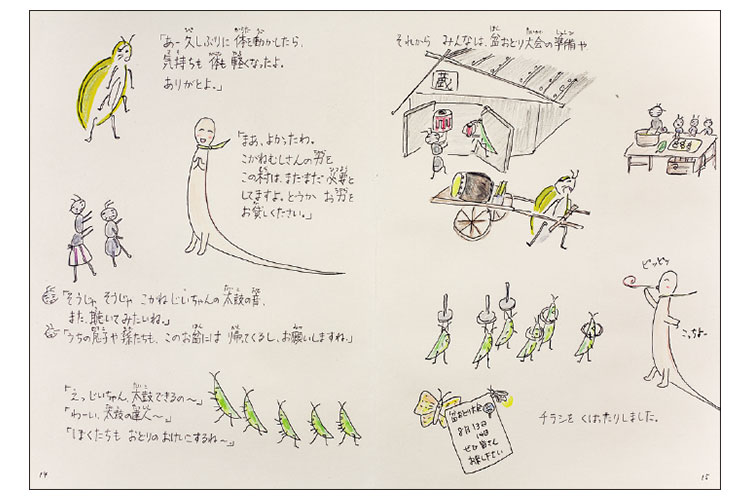 「あー久しぶりに 体を動かしたら、
気持ちも 体も 軽くなったよ。
ありがとよ。」
「まあ、よかったわ。
こがねむしさんの 力を
この村は、まだまだ 必要と
してますよ。どうか お力を
お貸しください。」
「そうじゃ そうじゃ こがねじいちゃんの 太鼓の音、
また、聴いてみたいね。」
「うちの 息子や 孫たちも、このお盆には 帰ってくるし、お願いしますね。」
「えっ じいちゃん、太鼓できるの〜」
「わーい、太鼓の達人〜」
「ぼくたちも おどりの おけいこするね〜」
14
それから みんなは、盆おどり大会の準備や
蔵
ピーヒャラ
こっちよー
盆おどり大会
8月13日
ぜひ皆さん
お楽しみ下さい
チラシを くばったりしました。
15